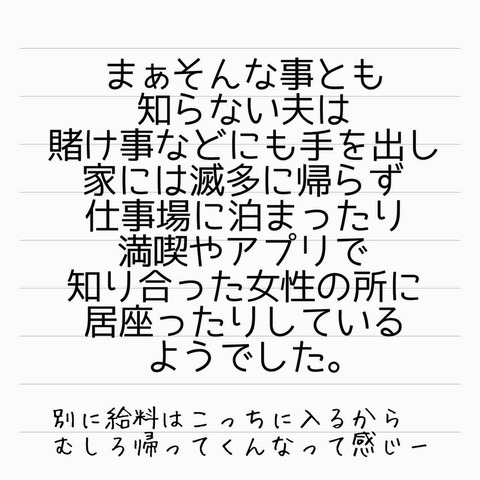 まぁそんな事とも
知らない夫は
賭け事などにも手を出し
家には滅多に帰らず
仕事場に泊まったり
満喫やアプリで
知り合った女性の所に
居座ったりしている
ようでした。
別に給料はこっちに入るから
むしろ帰ってくんなって感じー